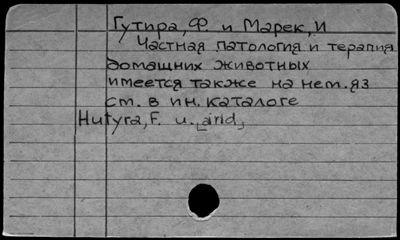 Гутира, Ф. и Марек, И
Частная патология и терапия
домашних животных
имеется также на нем. яз
см. в ин. каталоге
Hutyra, F. u.